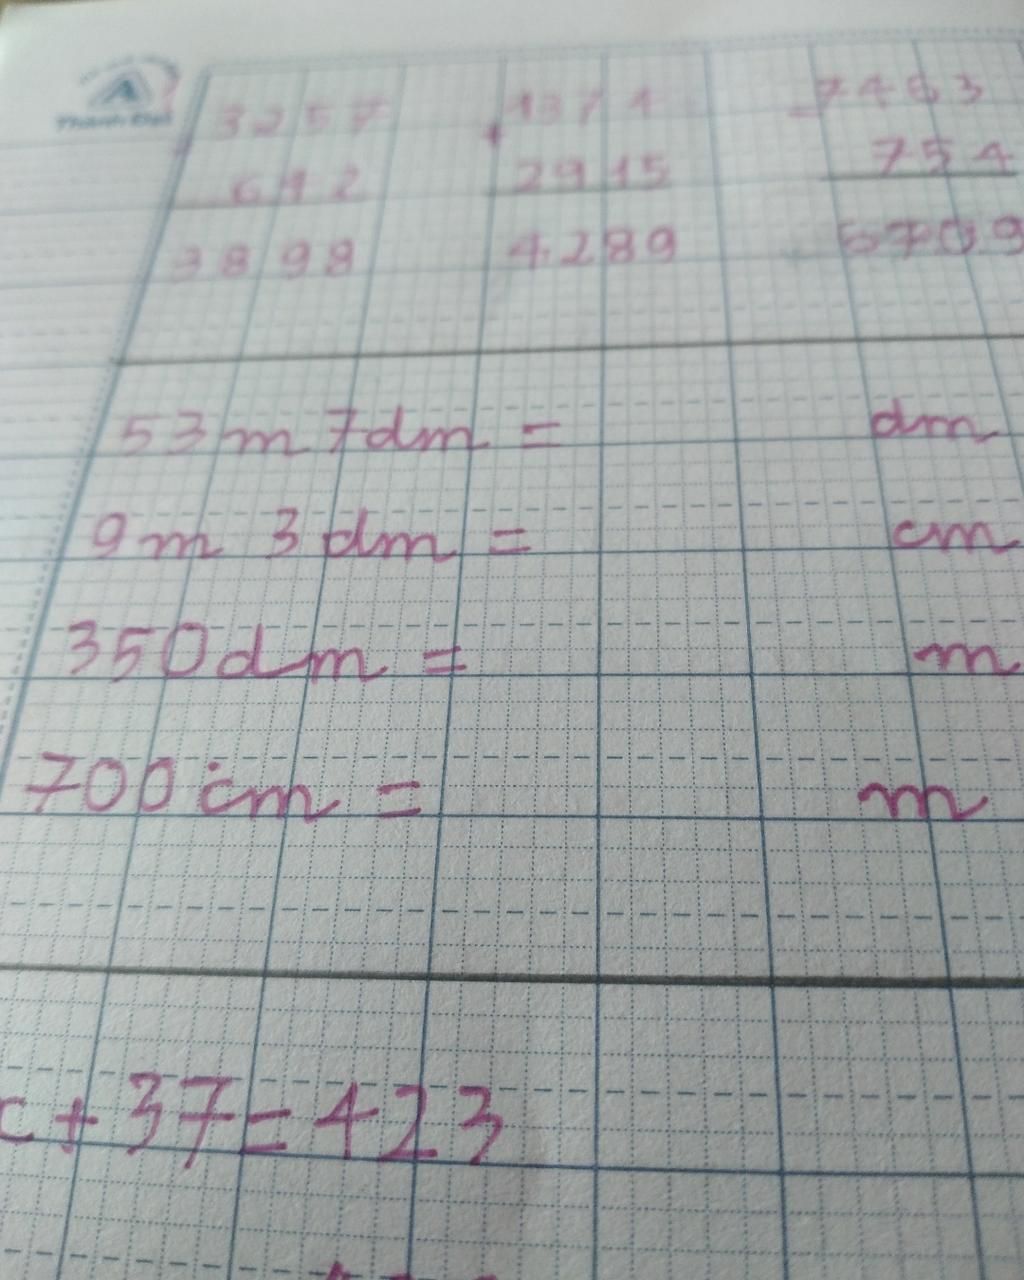 Thành Đạt
3257 + 1374 - 7463
642 2915 754
3898 4289 6709
53m 7dm = dm
9m 3dm = cm
350dm = m
700cm = m
+ 37 = 423